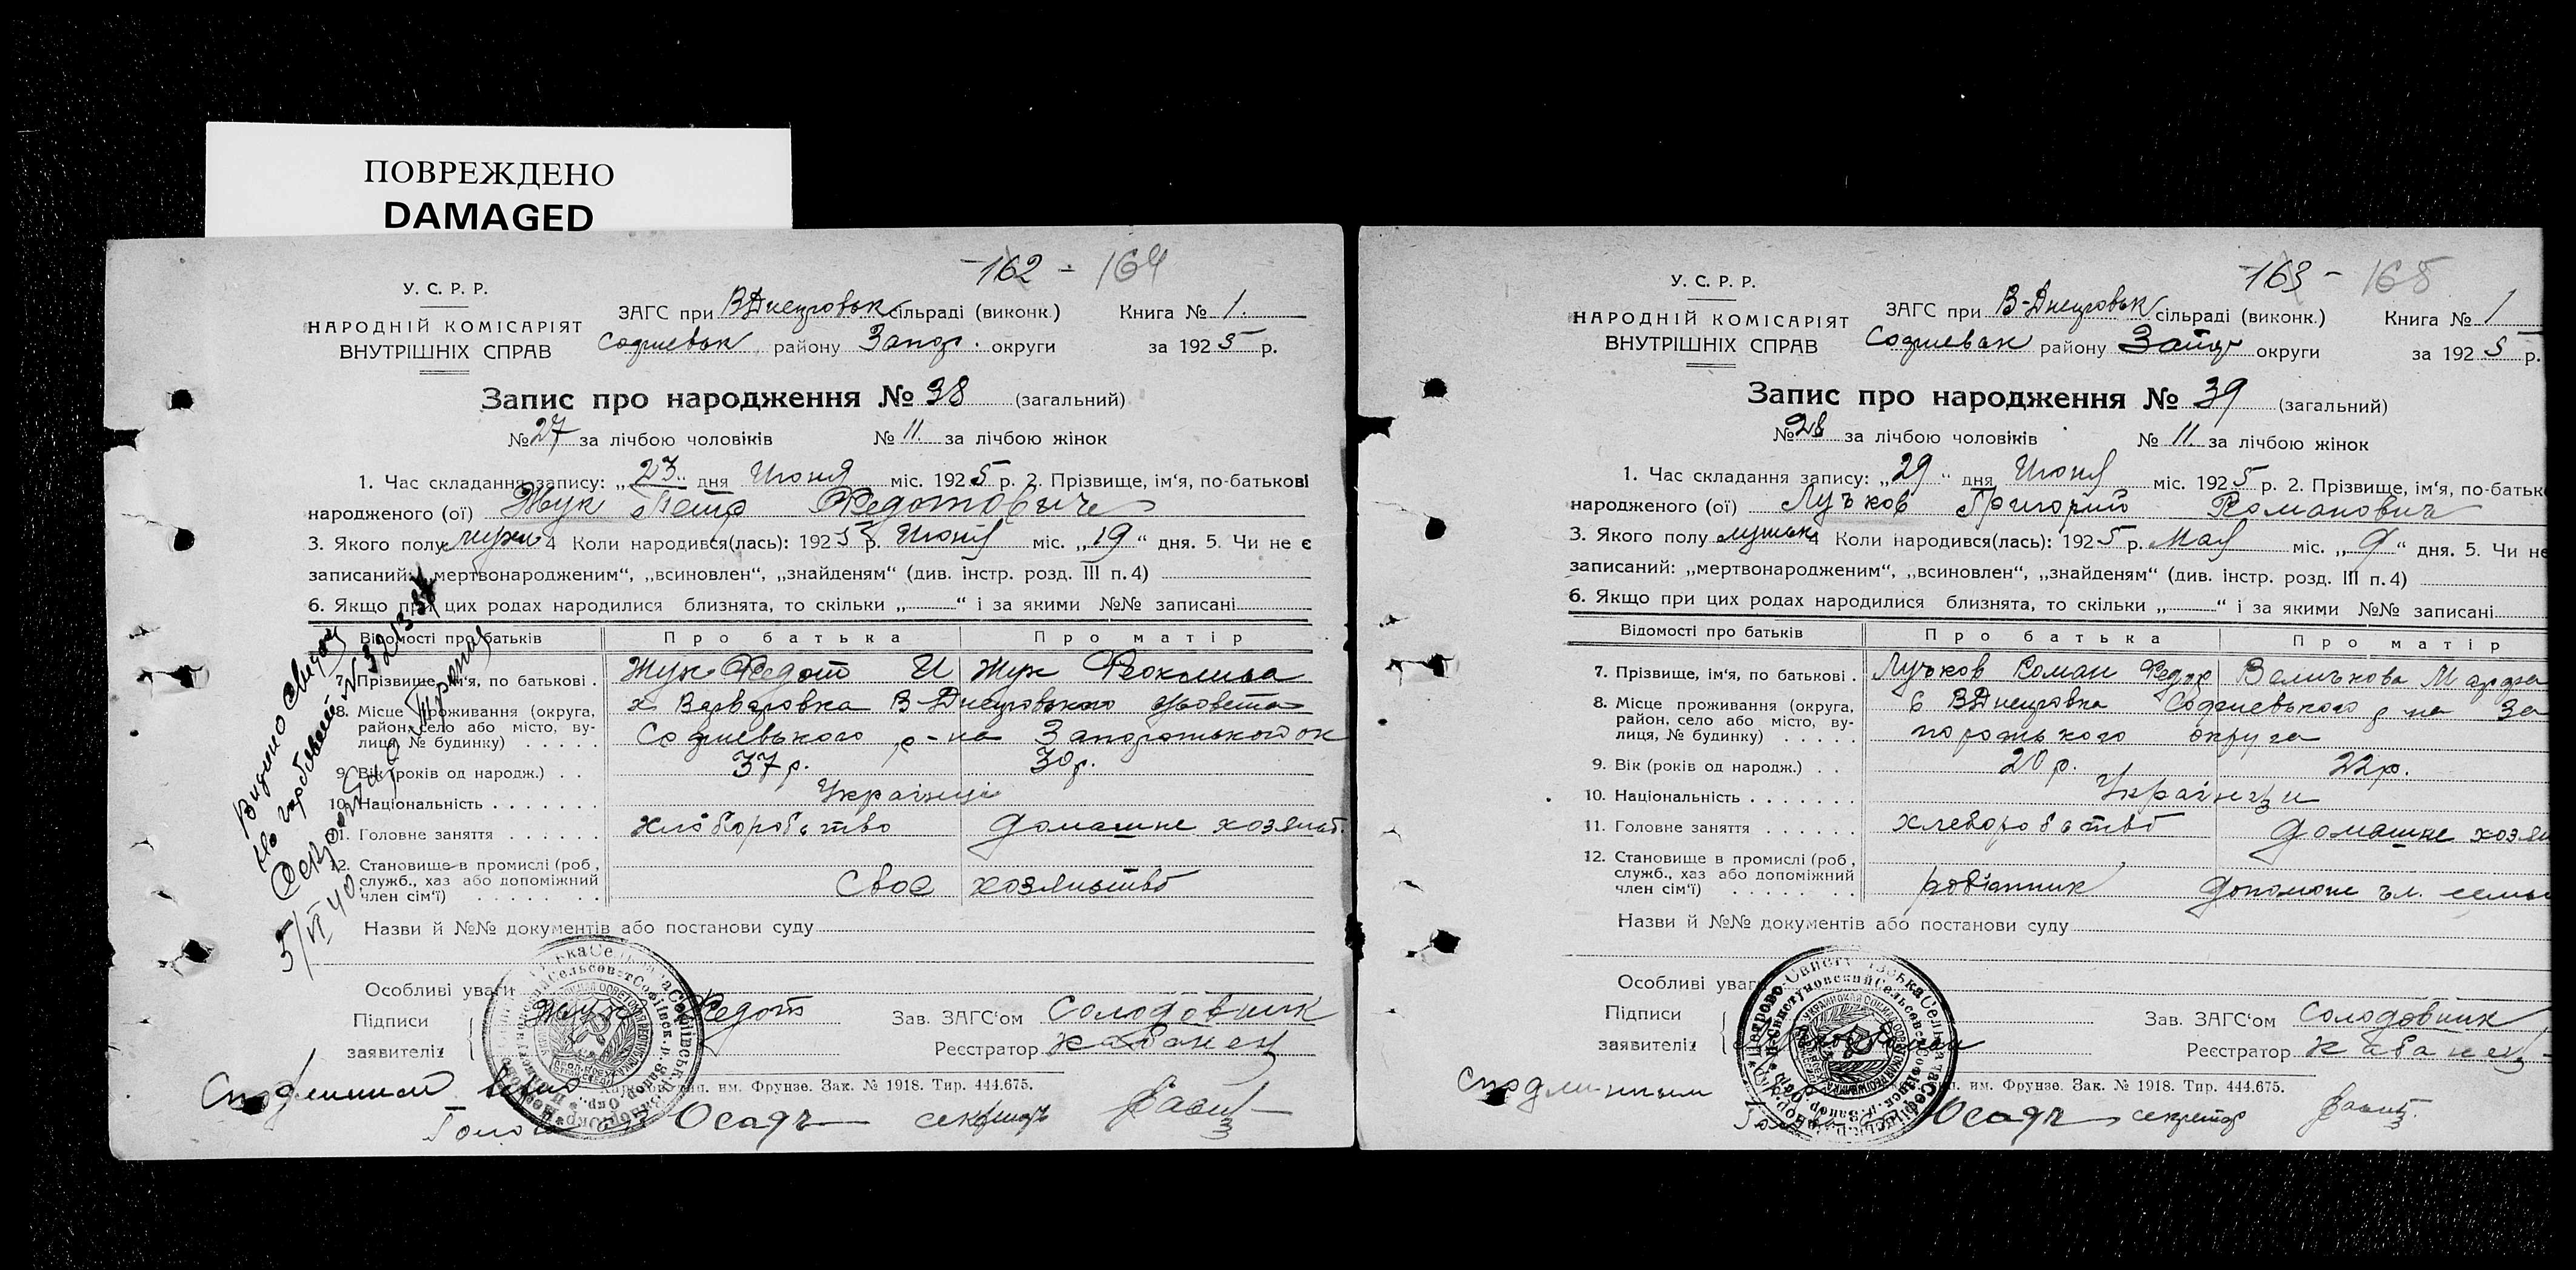 ПОВРЕЖДЕНО
DAMAGED
162 - 164
У. С. Р. Р.
НАРОДНІЙ КОМІСАРІЯТ
ВНУТРІШНІХ СПРАВ
ЗАГС при В Днепровськ сільраді (виконк.) Книга № 1.
Софиевськ району Запор. округи за 1925 р.
Запис про народження № 38 (загальний)
№ 27 за лічбою чоловіків № 11. за лічбою жінок
1. Час складання запису: „23„ дня Июня міс. 1925 р. 2. Прізвище, ім‘я, по-батькові
народженого (ої) Жук Петр Федотовичь
3. Якого полу мужч 4 Коли народився(лась): 1925 р. Июня міс. „19“ дня. 5. Чи не є
записаний: „мертвонародженим“, „всиновлен“, „знайденям“ (див. інстр. розд. III п. 4)
6. Якщо при цих родах народилися близнята, то скільки „ “ і за якими №№ записані
Відомості про батьків Про батька Про матір
7. Прізвище, ім‘я, по батькові . Жук Федот И Жук Феоклиса
8. Місце проживання (округа, район, село або місто, вулиця, № будинку) х Варваровка В-Днепровского
Софиевського р-на Запорожського ок
9. Вік (років од народж.) . . 37 р. 30 р.
10. Національність Українці
11. Головне заняття хліборобство домашне хозяйст.
12. Становище в промислі (роб., служб., хаз або допоміжний член сім‘ї) своє хозяйство
Назви й №№ документів або постанови суду
Особливі уваги
Підписи Жук Федот Зав. ЗАГС‘ом Солодовник
заявителіз Реєстратор Кабанец
им. Фрунзе. Зак. № 1918. Тир. 444.675.
Осадч секретарь
5/VI 40
163 - 165
У. С. Р. Р.
НАРОДНІЙ КОМІСАРІЯТ
ВНУТРІШНІХ СПРАВ
ЗАГС при В-Днепровськ сільраді (виконк.) Книга № 1
Софиевськ району Запор округи за 1925 р.
Запис про народження № 39 (загальний)
№ 28 за лічбою чоловіків № 11. за лічбою жінок
1. Час складання запису: „29“ дня Июня міс. 1925 р. 2. Прізвище, ім‘я, по-батьк
народженого (ої) Лучков Григорий Романович
3. Якого полу мужск 4 Коли народився(лась): 1925 р. Мая міс. „9“ дня. 5. Чи не
записаний: „мертвонародженим“, „всиновлен“, „знайденям“ (див. інстр. розд. III п. 4)
6. Якщо при цих родах народилися близнята, то скільки „ “ і за якими №№ записані
Відомості про батьків Про батька Про матір
7. Прізвище, ім‘я, по батькові . Лучков Роман Федор Величкова Марфа
8. Місце проживання (округа, район, село або місто, вулиця, № будинку) с ВДнепровка Софиевького р-на За
порожького округа
9. Вік (років од народж.) . . 20 р. 22 р.
10. Національність Українци
11. Головне заняття хлеборобство домашне хозяй
12. Становище в промислі (роб., служб., хаз або допоміжний член сім‘ї) робітник допомож чл. семьи
Назви й №№ документів або постанови суду
Особливі уваги
Підписи Зав. ЗАГС‘ом Солодовник
заявителіз Реєстратор Кабанец
им. Фрунзе. Зак. № 1918. Тир. 444.675.
Осадч секретар